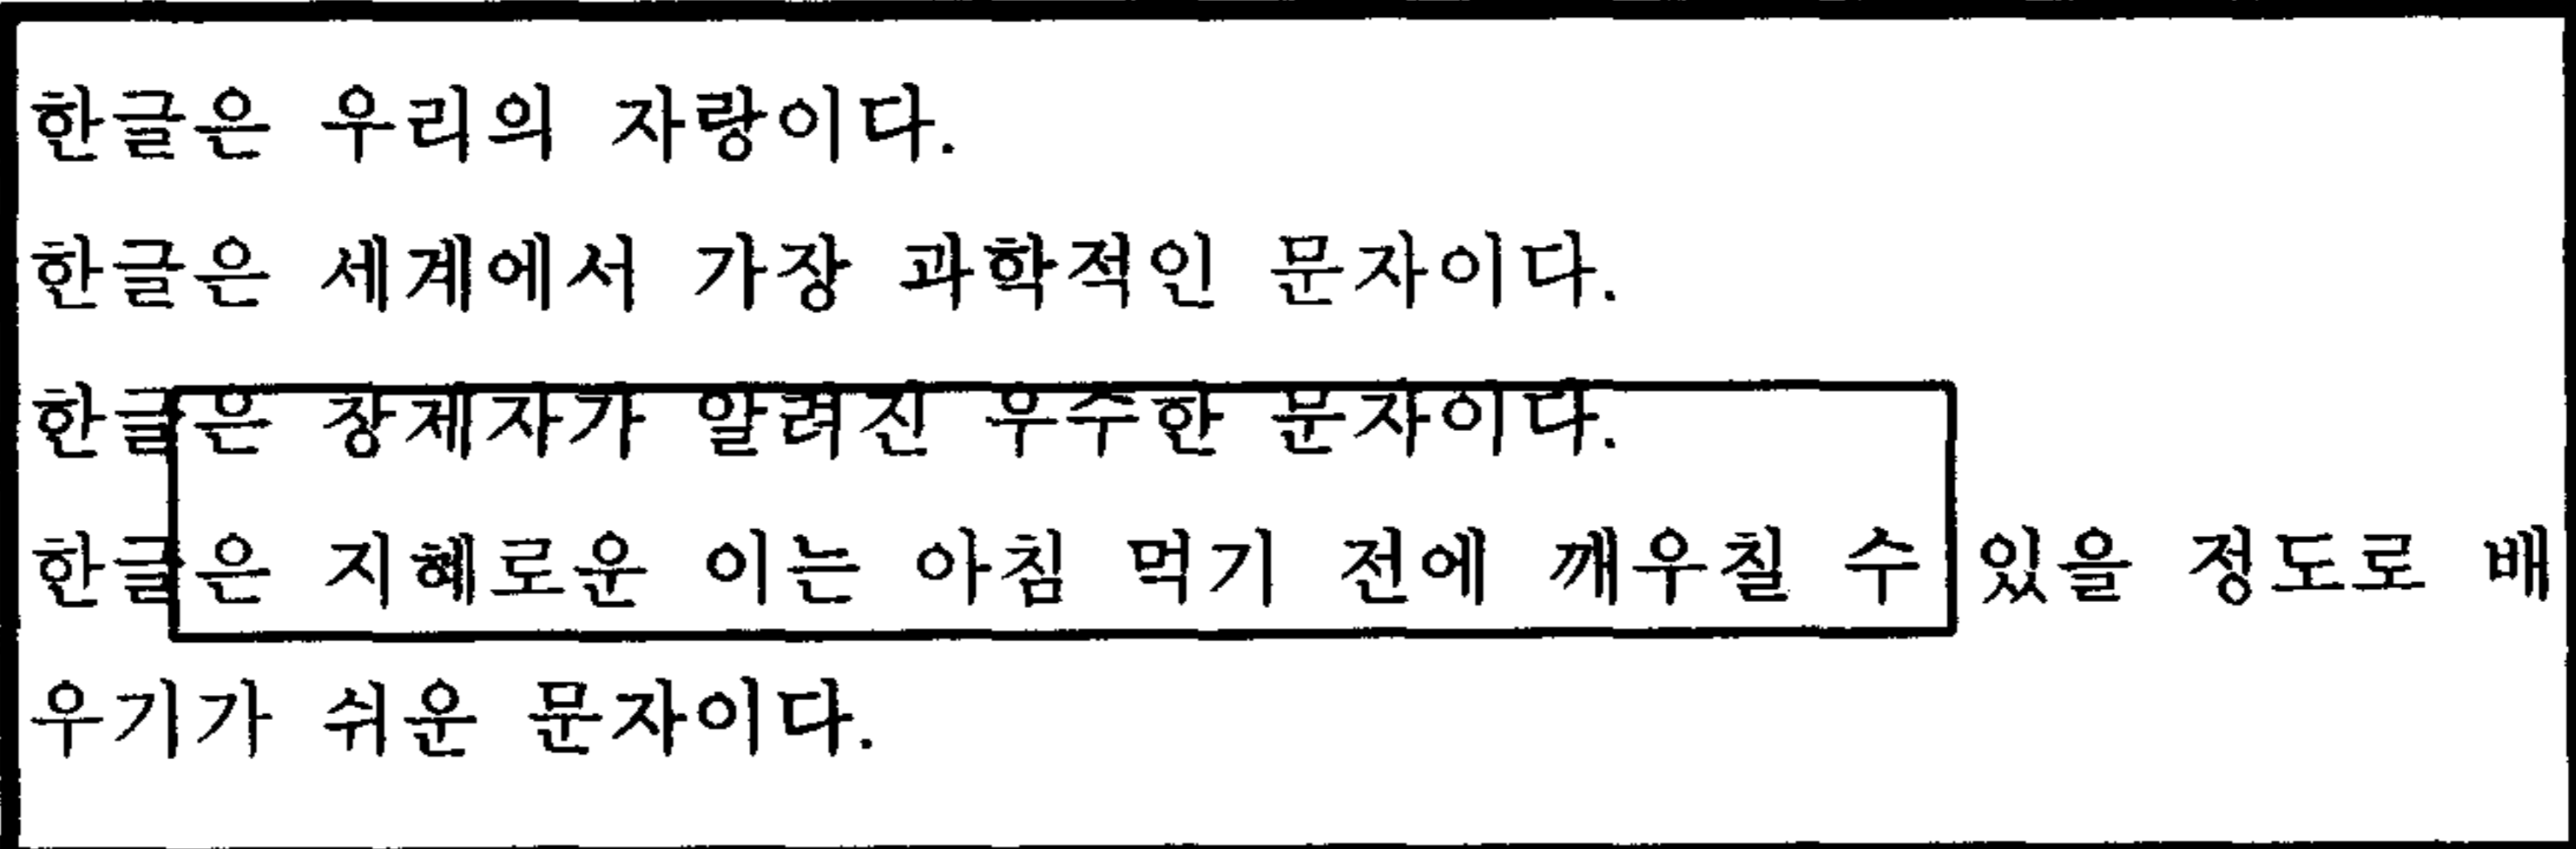 한글은 우리의 자랑이다.
한글은 세계에서 가장 과학적인 문자이다.
한글은 창제자가 알려진 우수한 문자이다.
한글은 지혜로운 이는 아침 먹기 전에 깨우칠 수 있을 정도로 배
우기가 쉬운 문자이다.